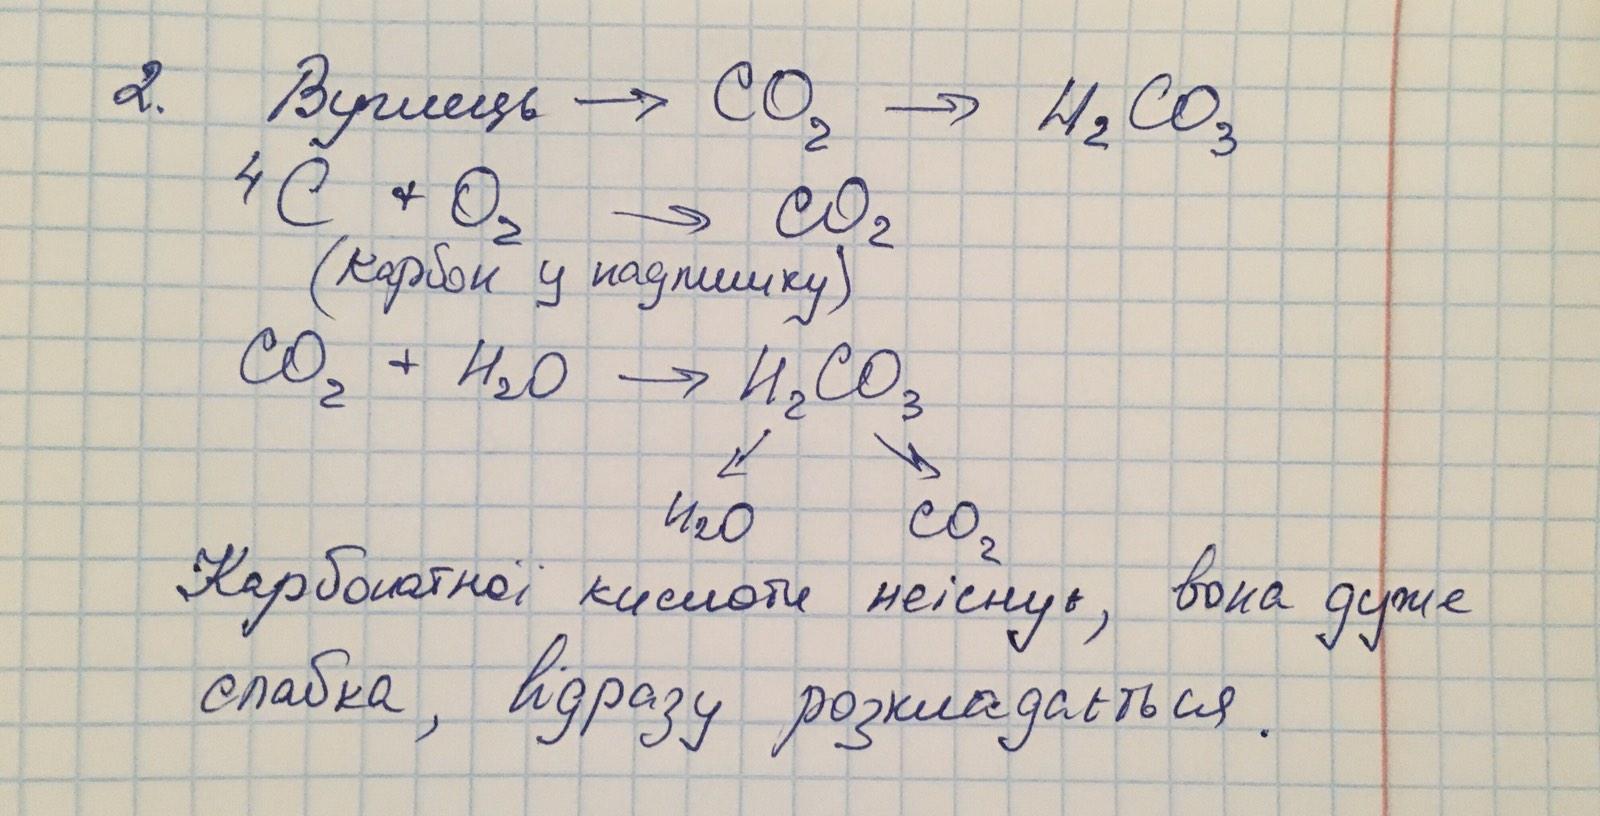 2. Вуглець → CO₂ → H₂CO₃
⁴C + O₂ → CO₂
(карбон у надлишку)
CO₂ + H₂O → H₂CO₃
↙ ↘
H₂O CO₂
Карбонатної кислоти неіснує, вона дуже
слабка, відразу розкладається.